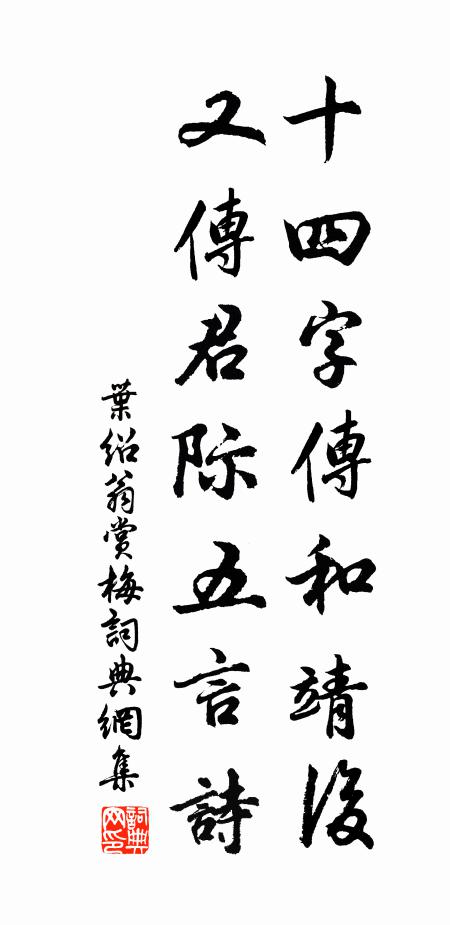 十四字傳和靖後
又傳君際五言詩
葉紹翁賞梅詞典網集
詞典網印